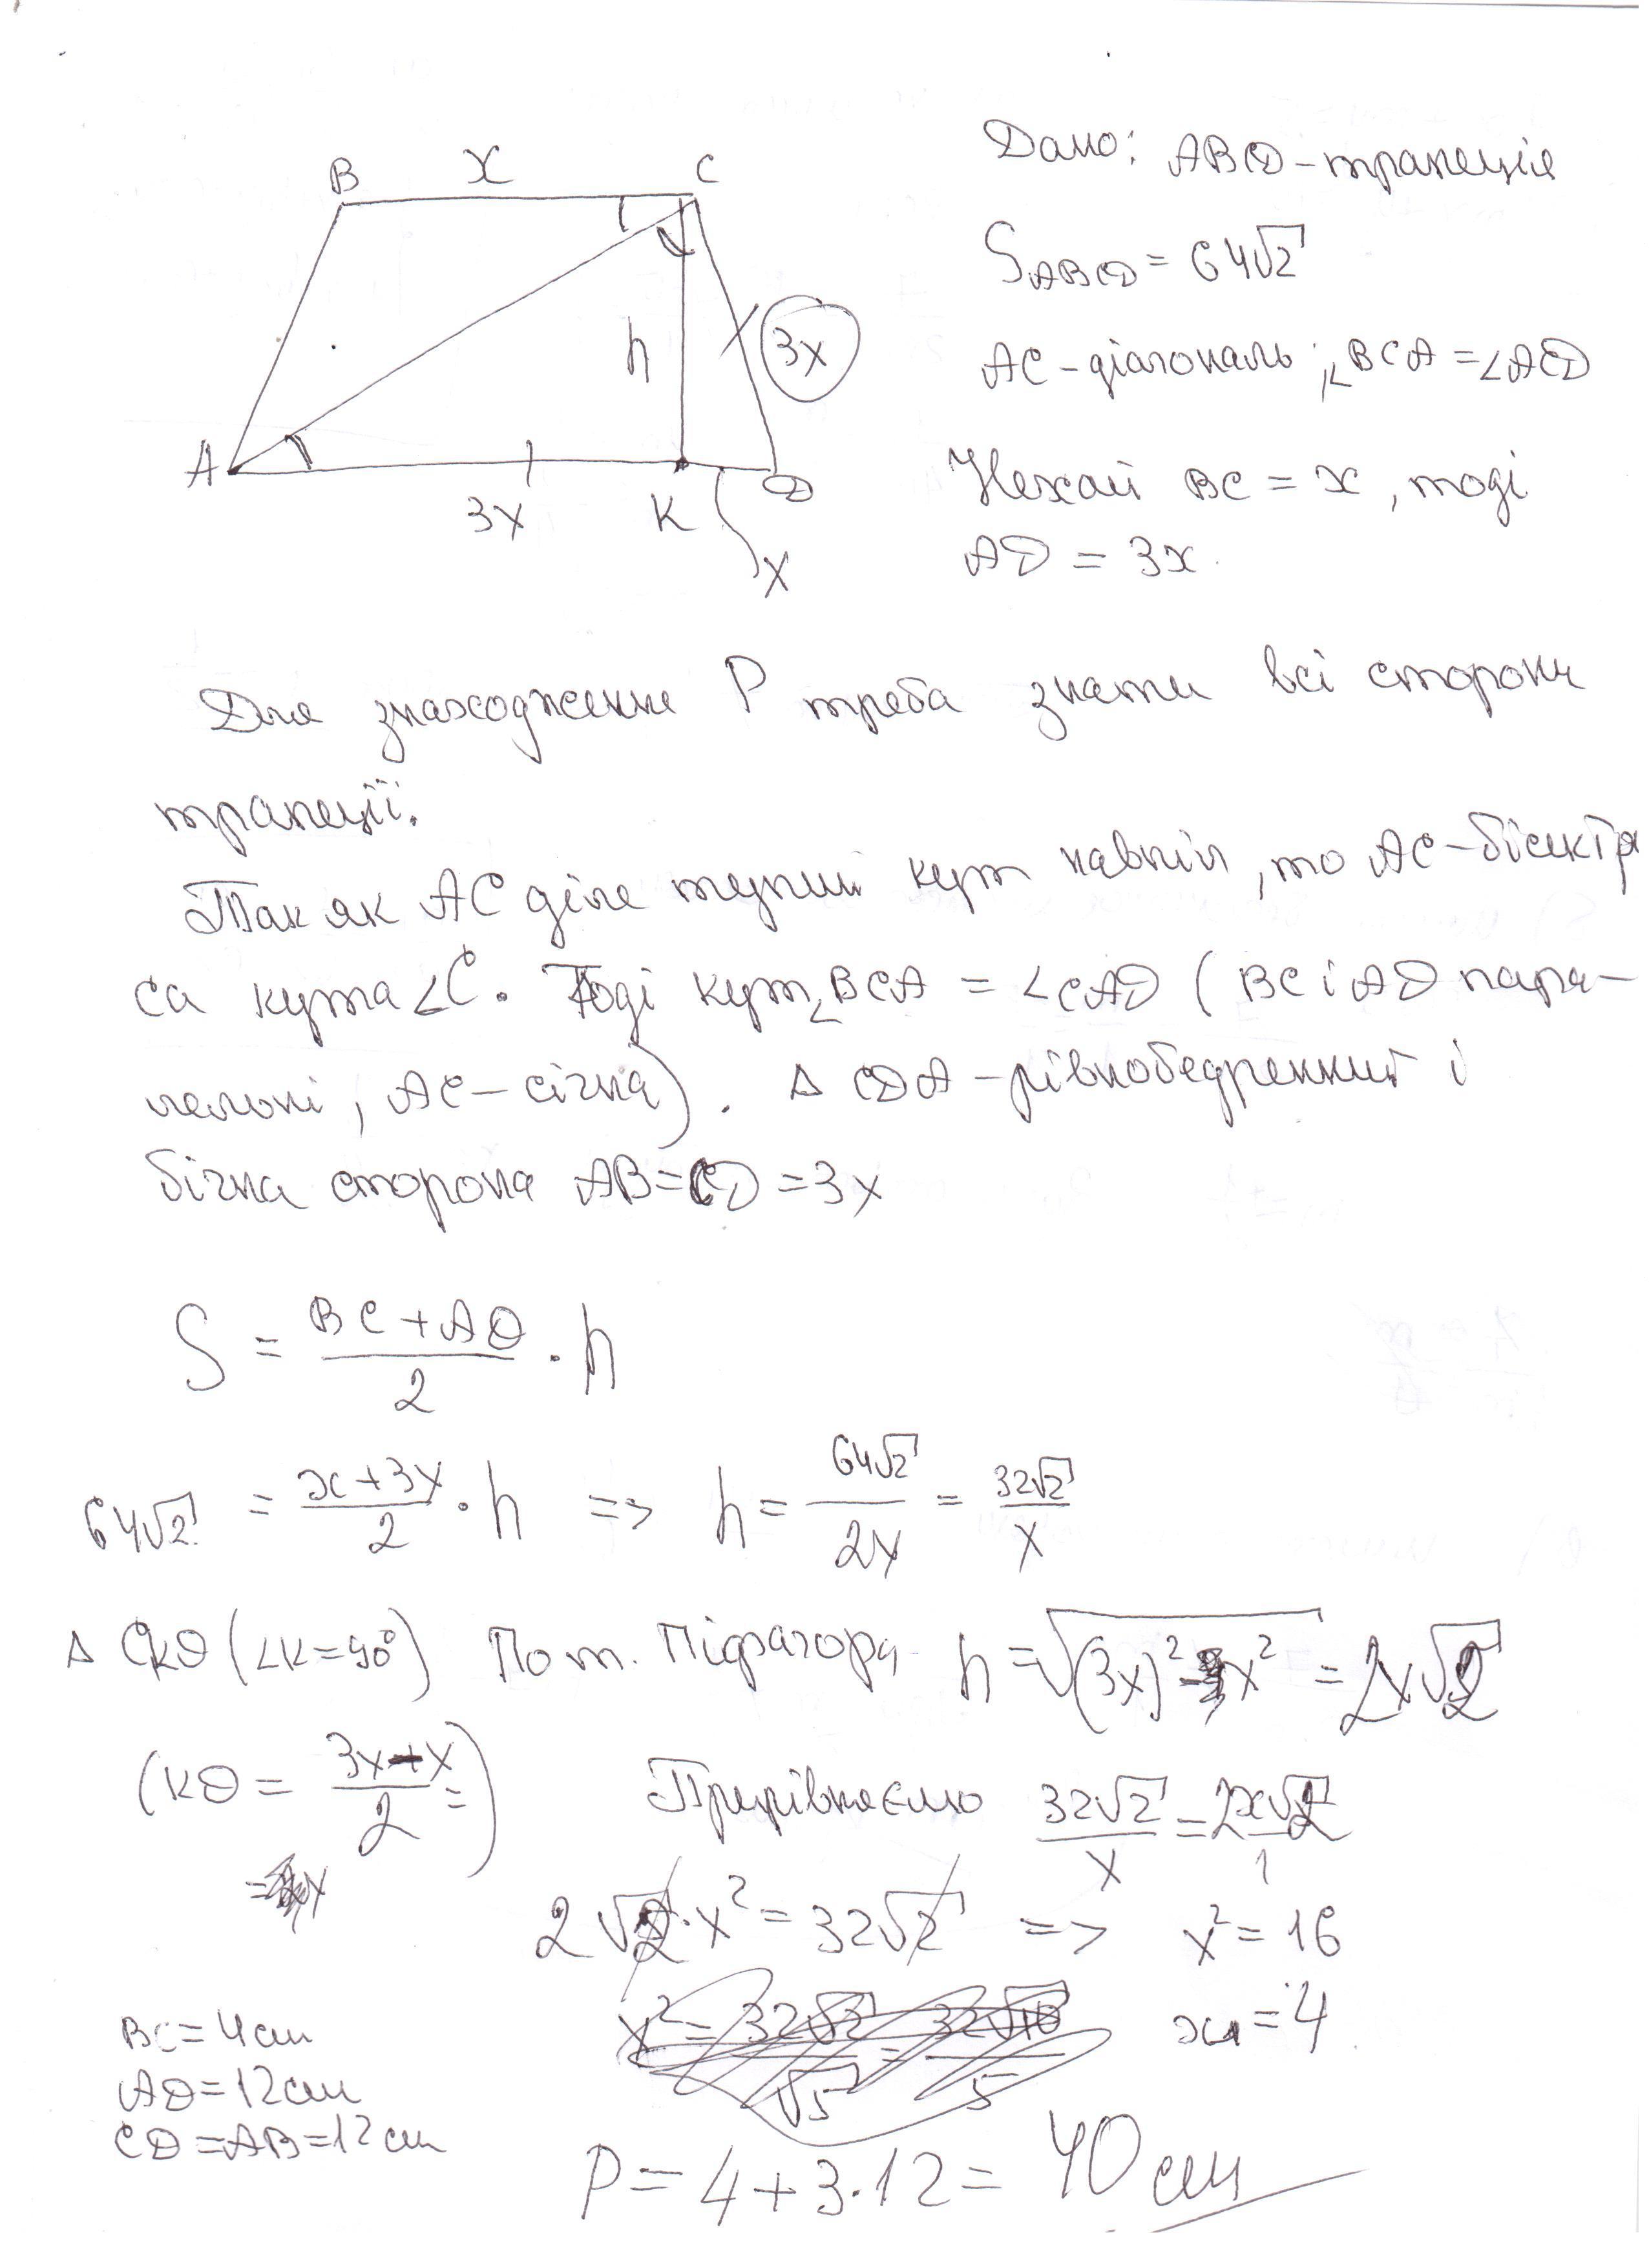 B x C
Дано: ABCD - трапеція
S ABCD = 64√2
h 3x
AC - діагональ; ∠BCA = ∠ACD
A 3x K D
x
Нехай BC = x, тоді
AD = 3x.
Для знаходження P треба знати всі сторони
трапеції.
Так як AC діле тупий кут навпіл, то AC - бісектри
са кута ∠C. Тоді кут ∠BCA = ∠CAD (BC і AD пара-
лельні, AC - січна). Δ CDA - рівнобедренний і
бічна сторона AB = CD = 3x
S = (BC + AD)/2 · h
64√2 = (x + 3x)/2 · h => h = 64√2/2x = 32√2/x
Δ CKD (∠K = 90°) По т. Піфагора h = √((3x)² - x²) = 2x√2
(KD = (3x - x)/2 =)
= x
Прирівняємо 32√2/x = 2x√2/1
2√2 · x² = 32√2 => x² = 16
x = 4
BC = 4 см
AD = 12 см
CD = AB = 12 см
P = 4 + 3·12 = 40 см